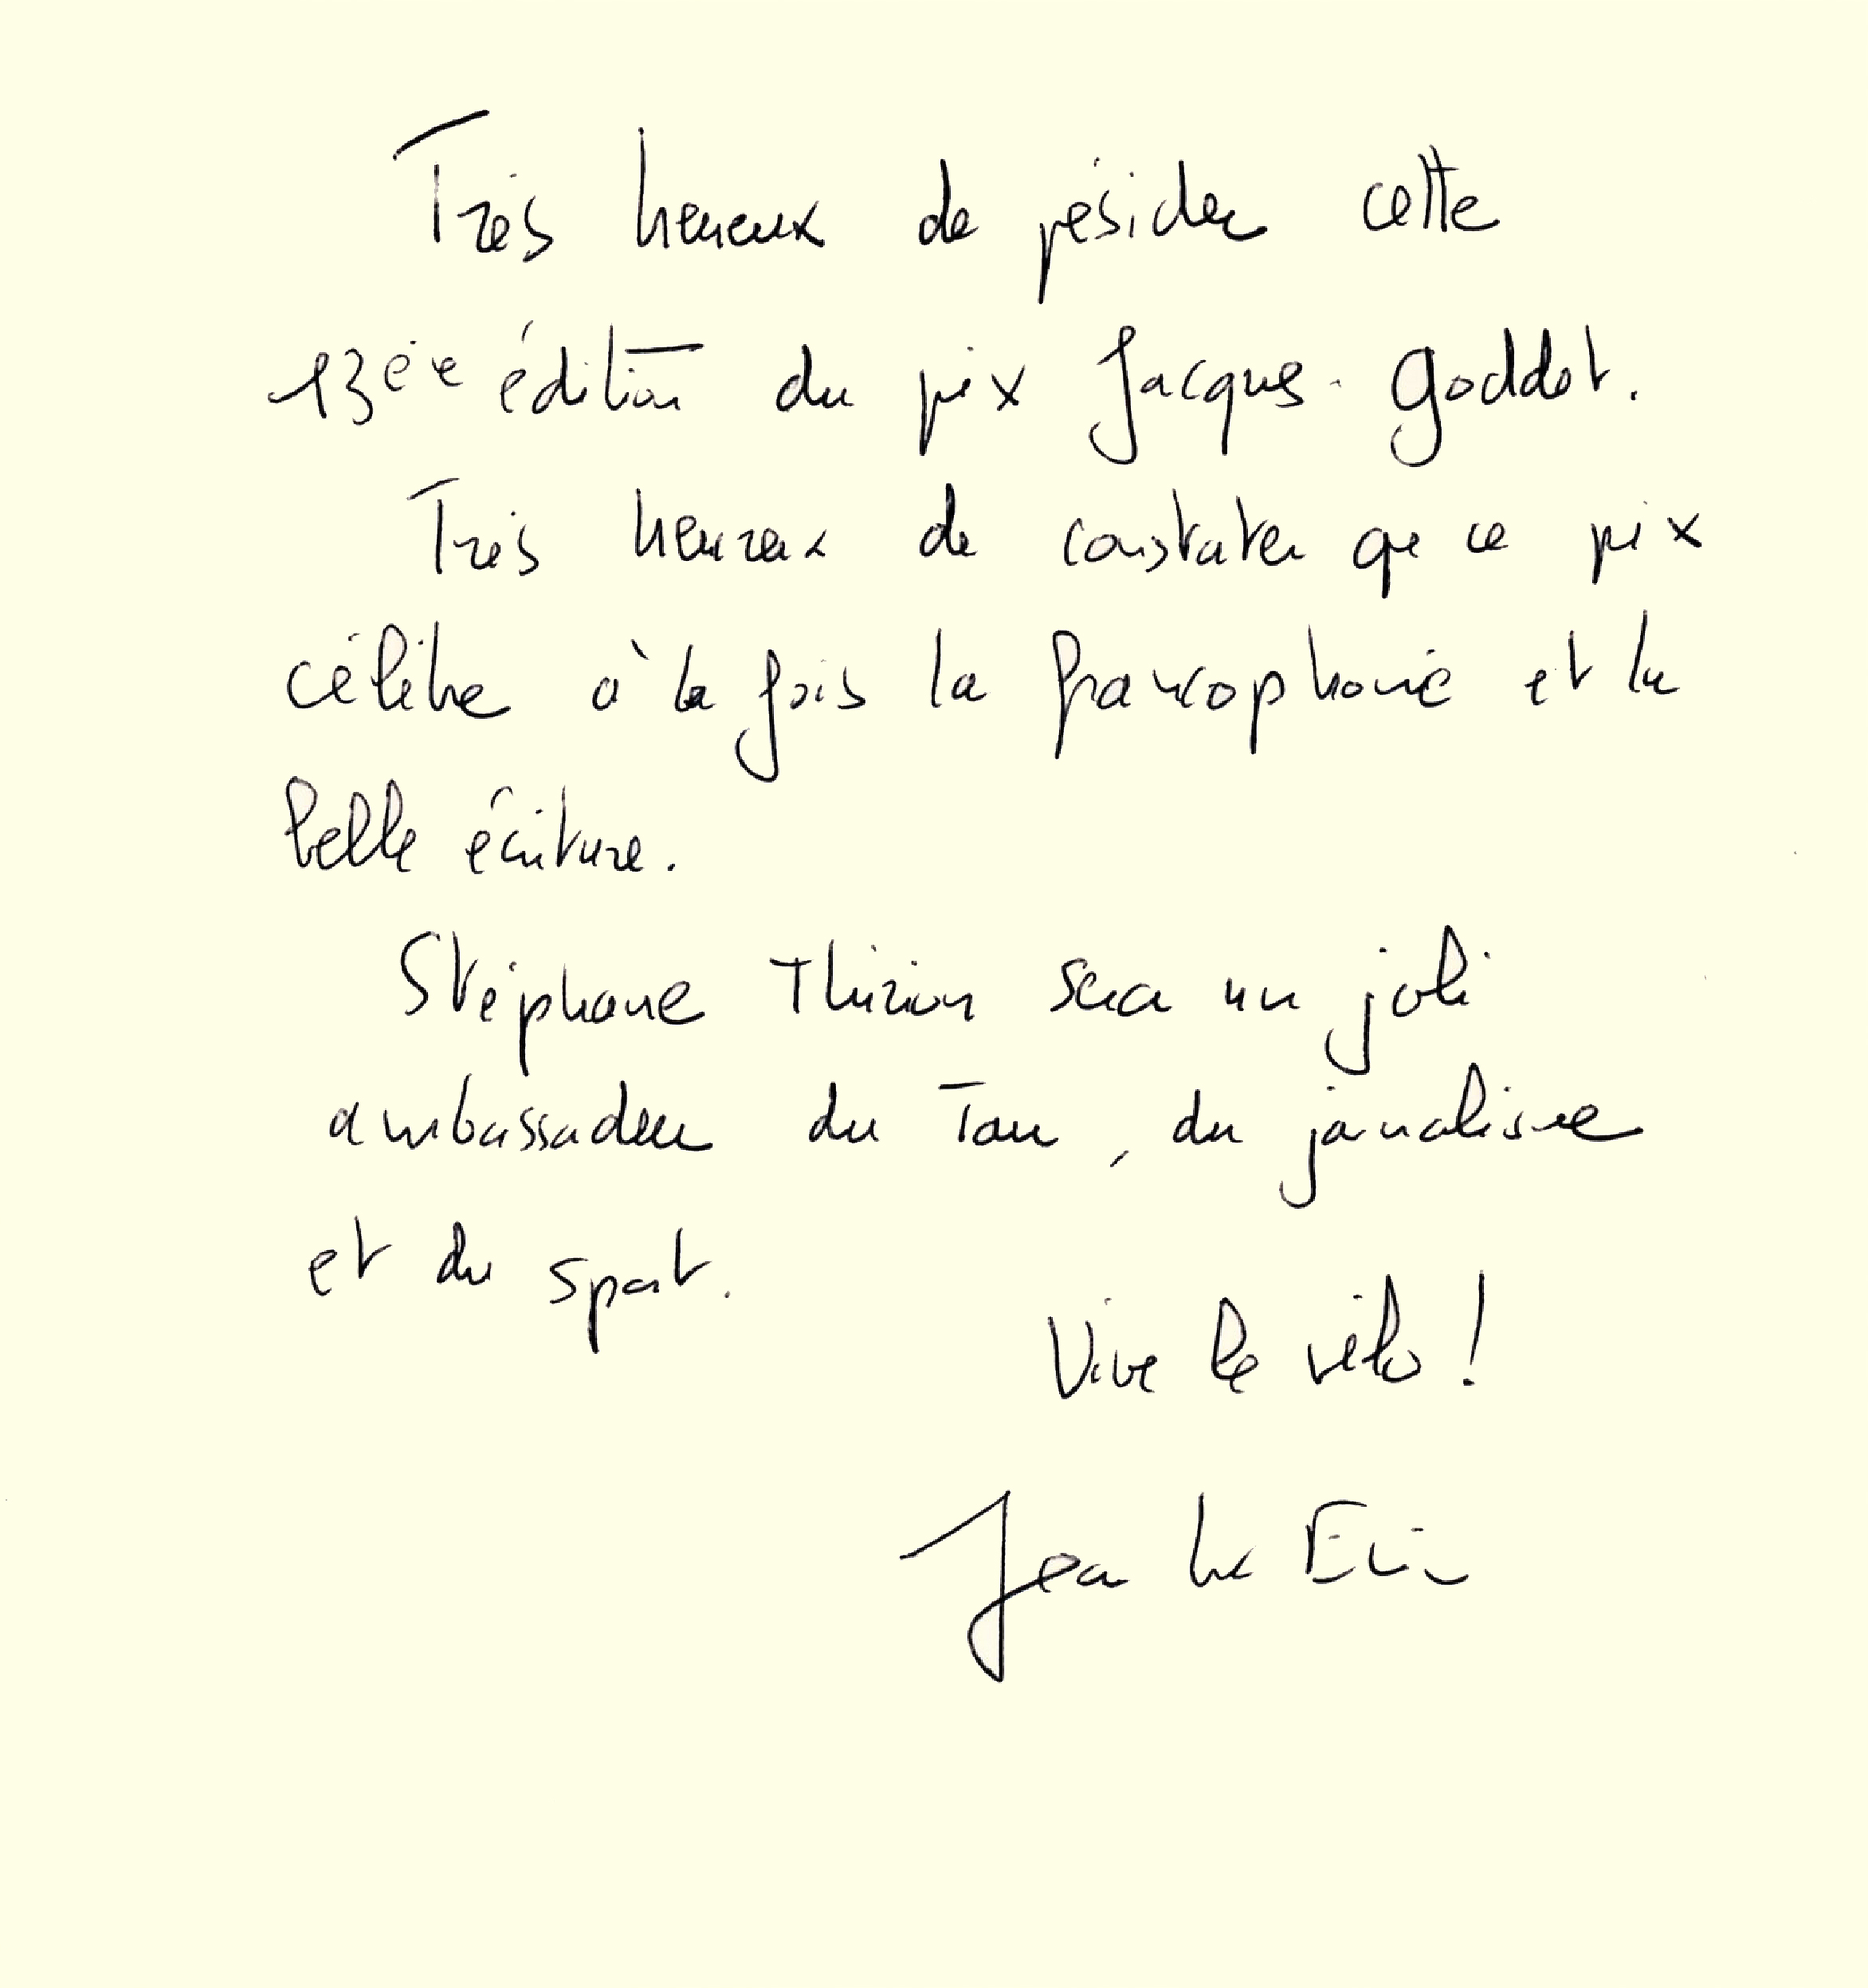 Très heureux de présider cette
13ème édition du prix Jacques-Goddet.
Très heureux de constater que ce prix
célèbre à la fois la francophonie et la
belle écriture.
Stéphane Thirion sera un joli
ambassadeur du Tour, du journalisme
et du sport.
Vive le vélo !
Jean Luc